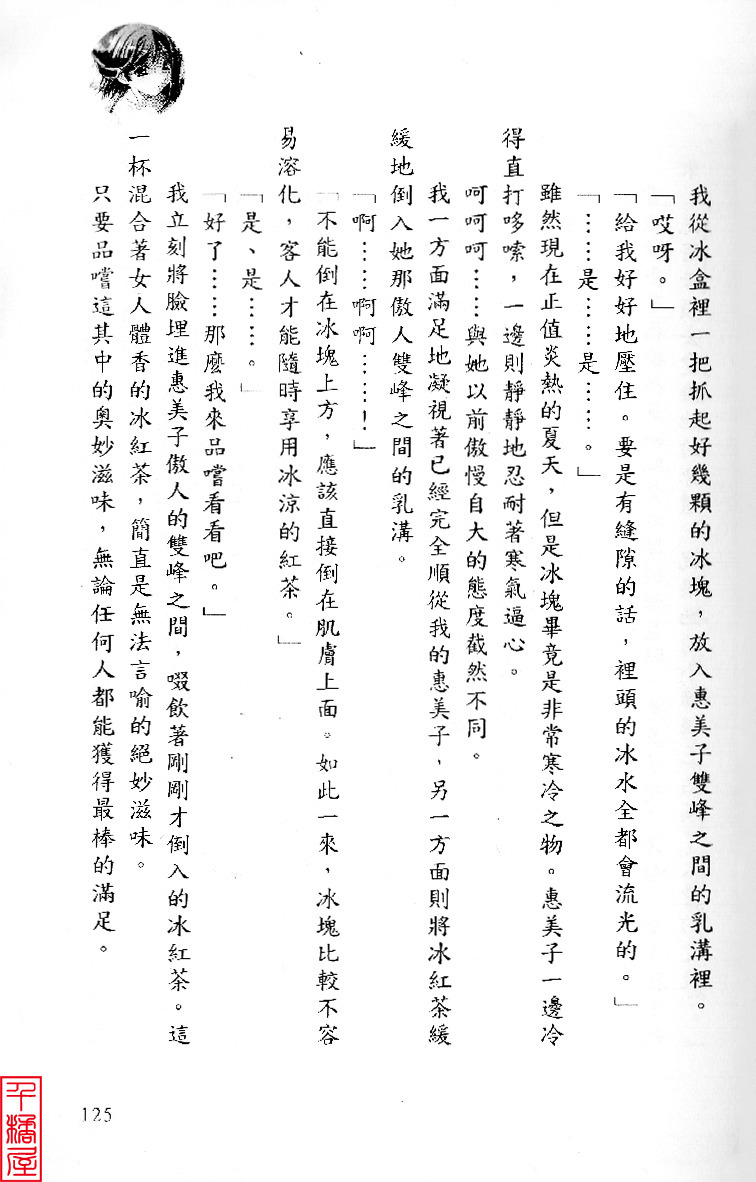 我從冰盒裡一把抓起好幾顆的冰塊，放入惠美子雙峰之間的乳溝裡。
「哎呀。」
「給我好好地壓住。要是有縫隙的話，裡頭的冰水全都會流光的。」
「……是……是……。」
雖然現在正值炎熱的夏天，但是冰塊畢竟是非常寒冷之物。惠美子一邊冷
得直打哆嗦，一邊則靜靜地忍耐著寒氣逼心。
呵呵呵……與她以前傲慢自大的態度截然不同。
我一方面滿足地凝視著已經完全順從我的惠美子，另一方面則將冰紅茶緩
緩地倒入她那傲人雙峰之間的乳溝。
「啊……啊啊……！」
「不能倒在冰塊上方，應該直接倒在肌膚上面。如此一來，冰塊比較不容
易溶化，客人才能隨時享用冰涼的紅茶。」
「是、是……。」
「好了……那麼我來品嚐看看吧。」
我立刻將臉埋進惠美子傲人的雙峰之間，啜飲著剛剛才倒入的冰紅茶。這
一杯混合著女人體香的冰紅茶，簡直是無法言喻的絕妙滋味。
只要品嚐這其中的奧妙滋味，無論任何人都能獲得最棒的滿足。
125
千橘屋